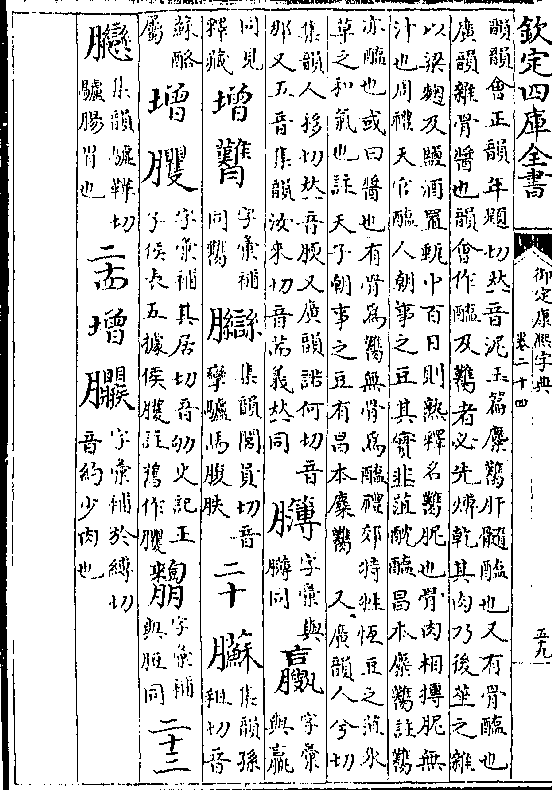 欽定四庫全書
御定康熙字典
卷二十四
五九
韻韻會正韻年題切𠀤音泥玉篇麋臡肝髓醢也又有骨醢也
廣韻雜骨醬也韻會作醢及臡者必先膊乾其肉乃後莝之雜
以梁麴及鹽酒置甀中百日則熟釋名臡胒也骨肉相搏胒無
汁也周禮天官醢人朝事之豆其實韭菹醓醢昌本麋臡註臡
亦醢也或曰醬也有骨為臡無骨為醢禮郊特牲恆豆之菹水
草之和氣也註天子朝事之豆有昌本麋臡 又廣韻人兮切
集韻人移切𠀤音腝又廣韻諾何切音
那又五音集韻汝來切音荋義𠀤同
字彙與
膊同
字彙
與羸
同見
釋藏
增
字彙補
同臡
臠
集韻閭員切音
攣驢馬腹胅
二十
集韻孫
租切音
蘇酪
屬
增臞
字彙補其居切音劬史記王
子侯表五據侯臞註舊作䑏
字彙補
與脰同
二十三
集韻驢鞾切
驢腸胃也
二十四
增
字彙補於縛切
音約少肉也